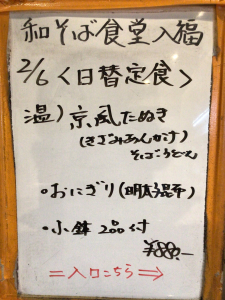 和そば食堂入福
2/6<日替定食>
温)京風たぬき
(きざみあんかけ)
そばorうどん
・おにぎり(明太昆布)
・小鉢 2品付
¥880.-
=入口こちら⇒